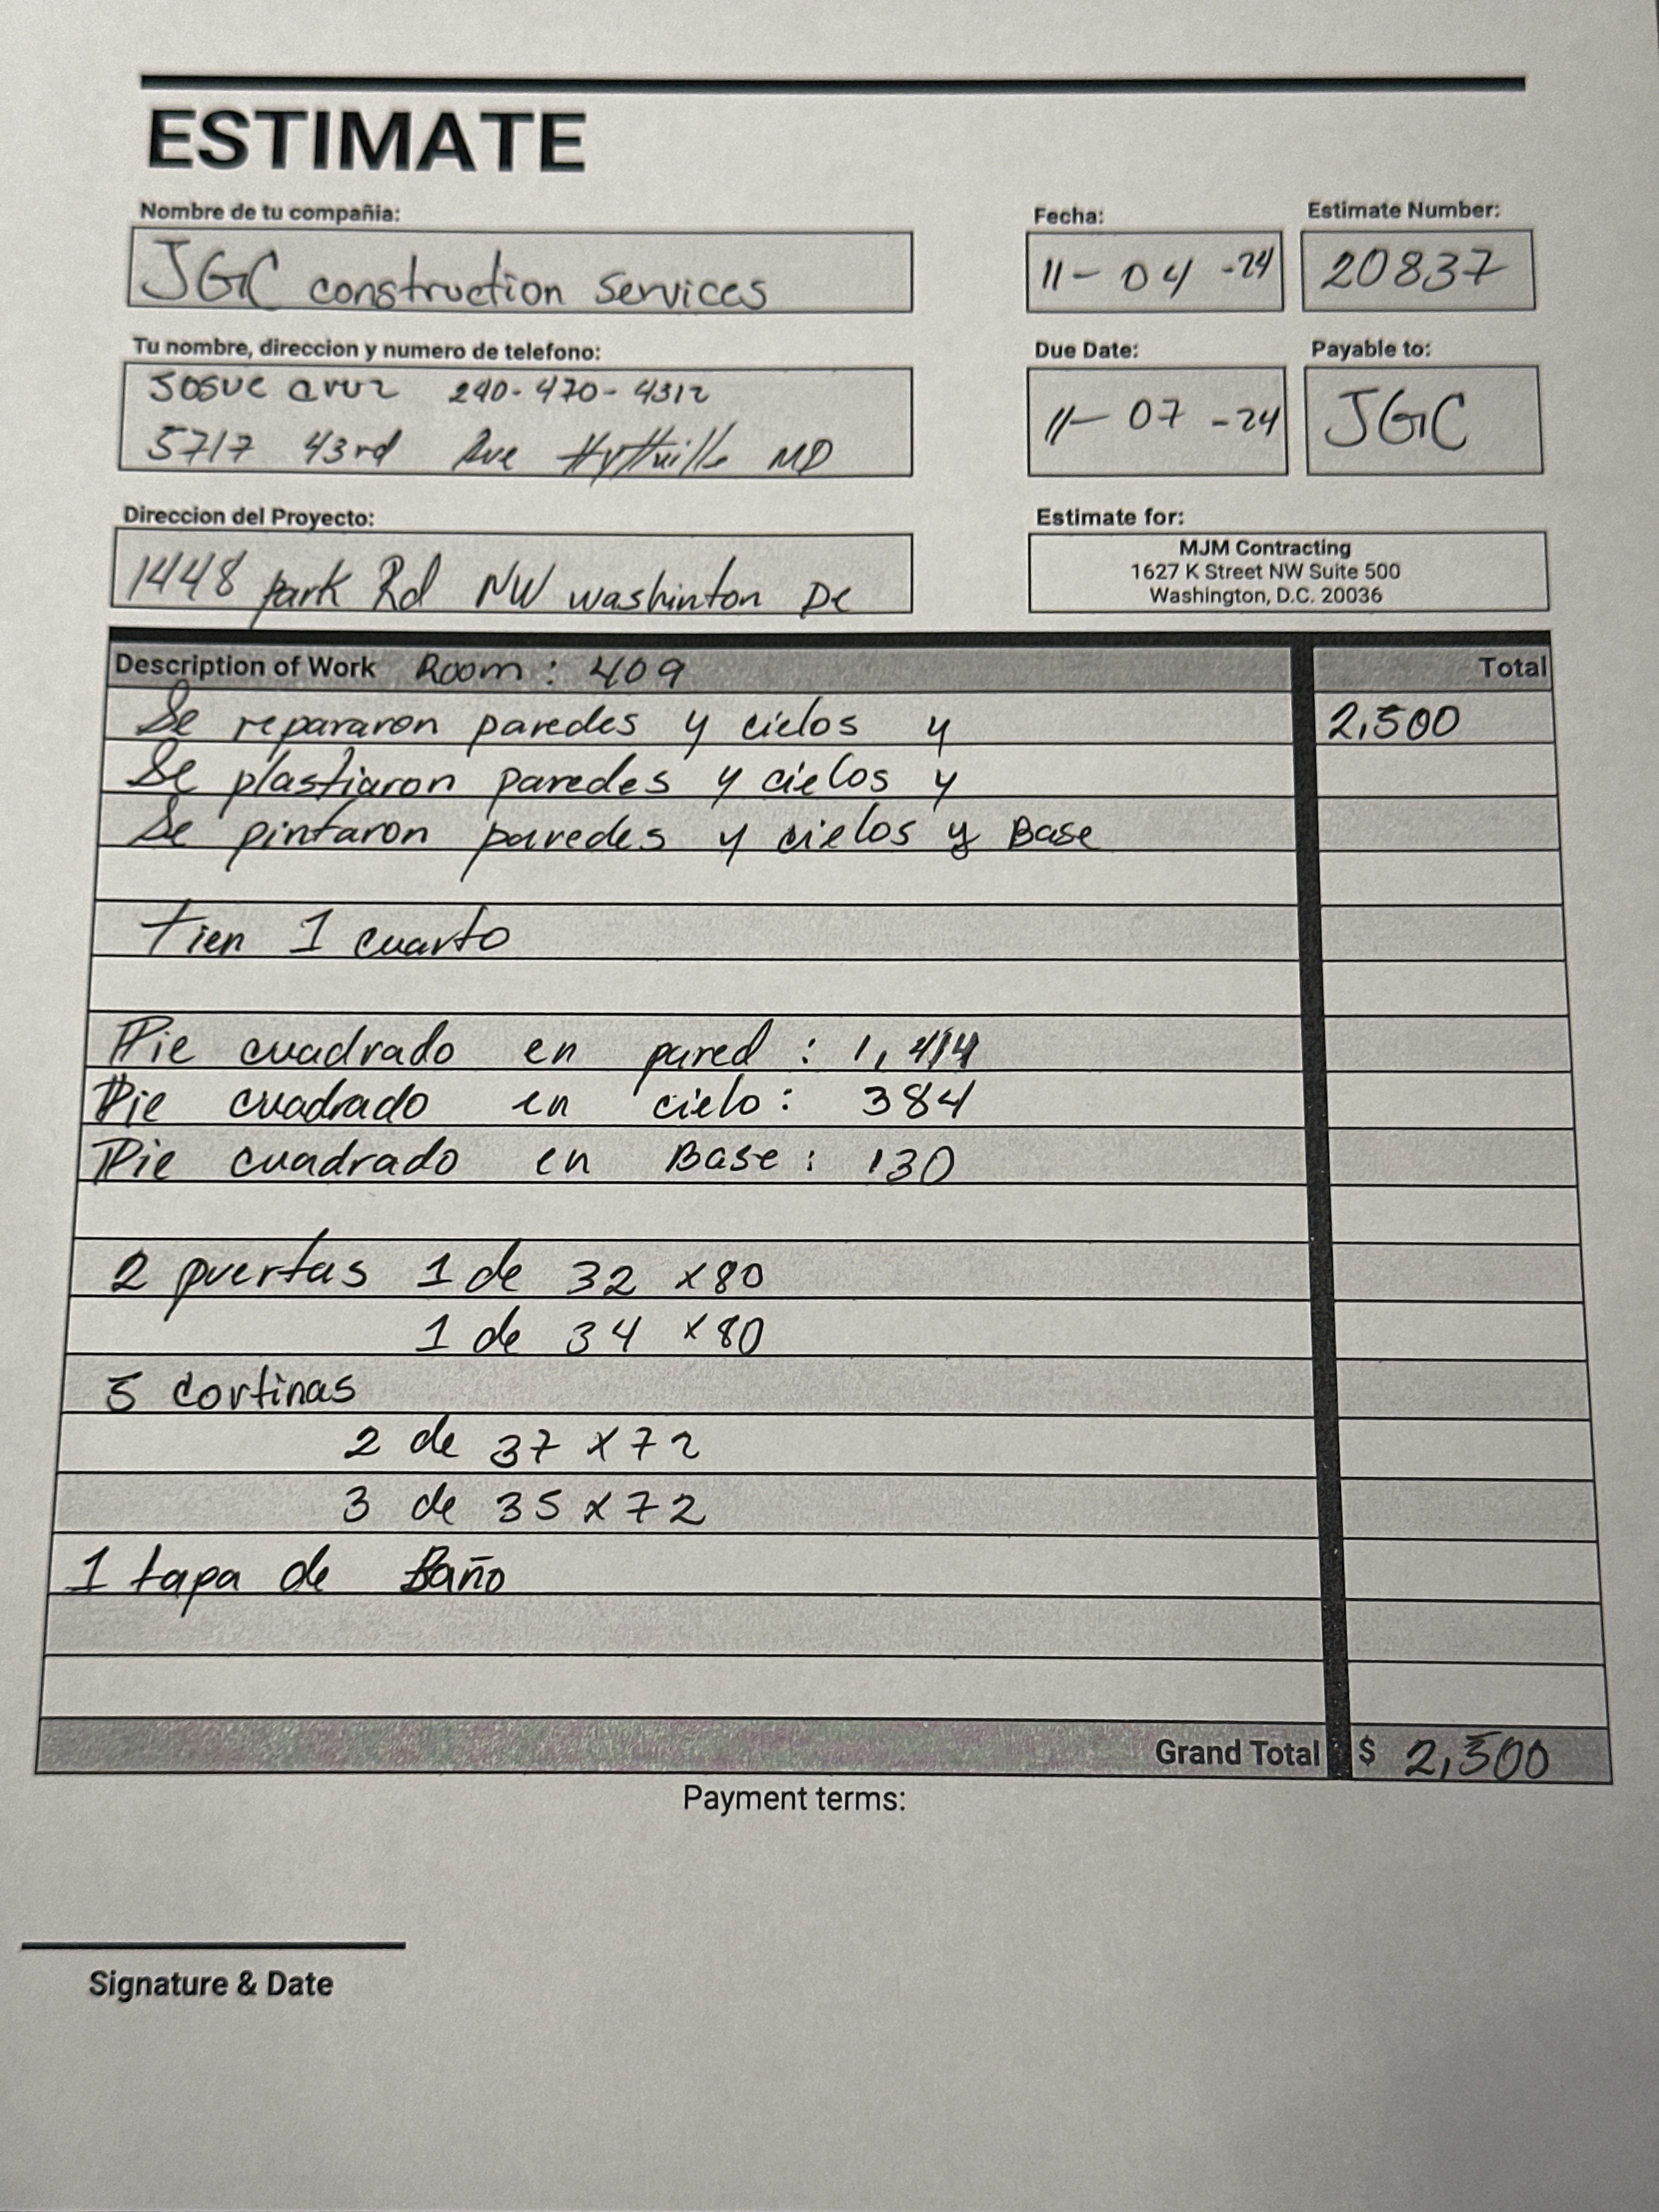 ESTIMATE
Nombre de tu compañia:
Fecha:
Estimate Number:
JGC construction services
11-04-24
20837
Tu nombre, direccion y numero de telefono:
Due Date:
Payable to:
Josue cruz 240-470-4312
5717 43rd Ave MD
11-07-24
JGC
Direccion del Proyecto:
Estimate for:
1448 park Rd NW washinton DC
MJM Contracting
1627 K Street NW Suite 500
Washington, D.C. 20036
Description of Work Room: 409 Total
Se repararon paredes y cielos y 2,500
Se plastiaron paredes y cielos y
Se pintaron paredes y cielos y Base
tien 1 cuarto
Pie cuadrado en pared: 1,414
Pie cuadrado en cielo: 384
Pie cuadrado en Base: 130
2 puertas 1 de 32 x80
1 de 34 x80
5 cortinas
2 de 37 x 72
3 de 35 x 72
1 tapa de Baño
Grand Total $ 2,500
Payment terms:
Signature & Date